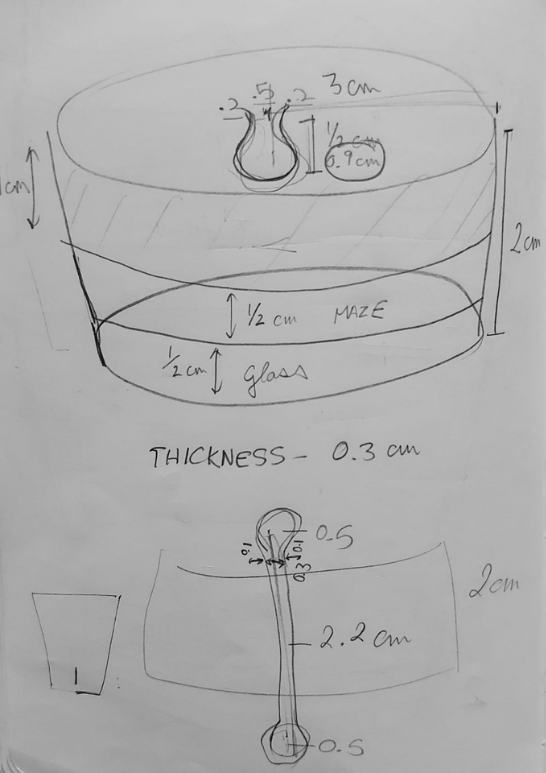 .2 .5 .2 3cm
1/2 cm
0.9cm
cm
2cm
1/2 cm MAZE
1/2 cm glass
THICKNESS - 0.3 cm
0.5
0.1 0.1
0.3
2cm
2.2 cm
0.5